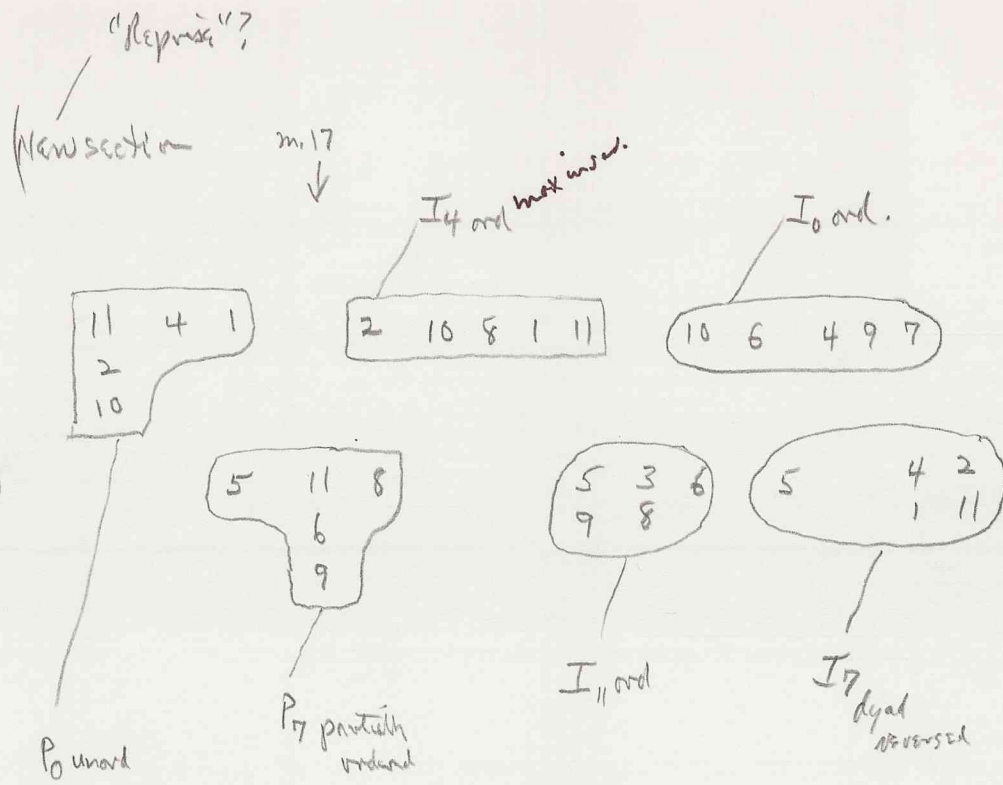 "Reprise"?
New section m.17
I4 ord max inst.
I0 ord.
11 4 1
2
10
2 10 8 1 11
10 6 4 9 7
5 11 8
6
9
5 3 6
9 8
5 4 2
1 11
P0 unord
P7 partially
ordered
I11 ord
I7
dyad
reversed